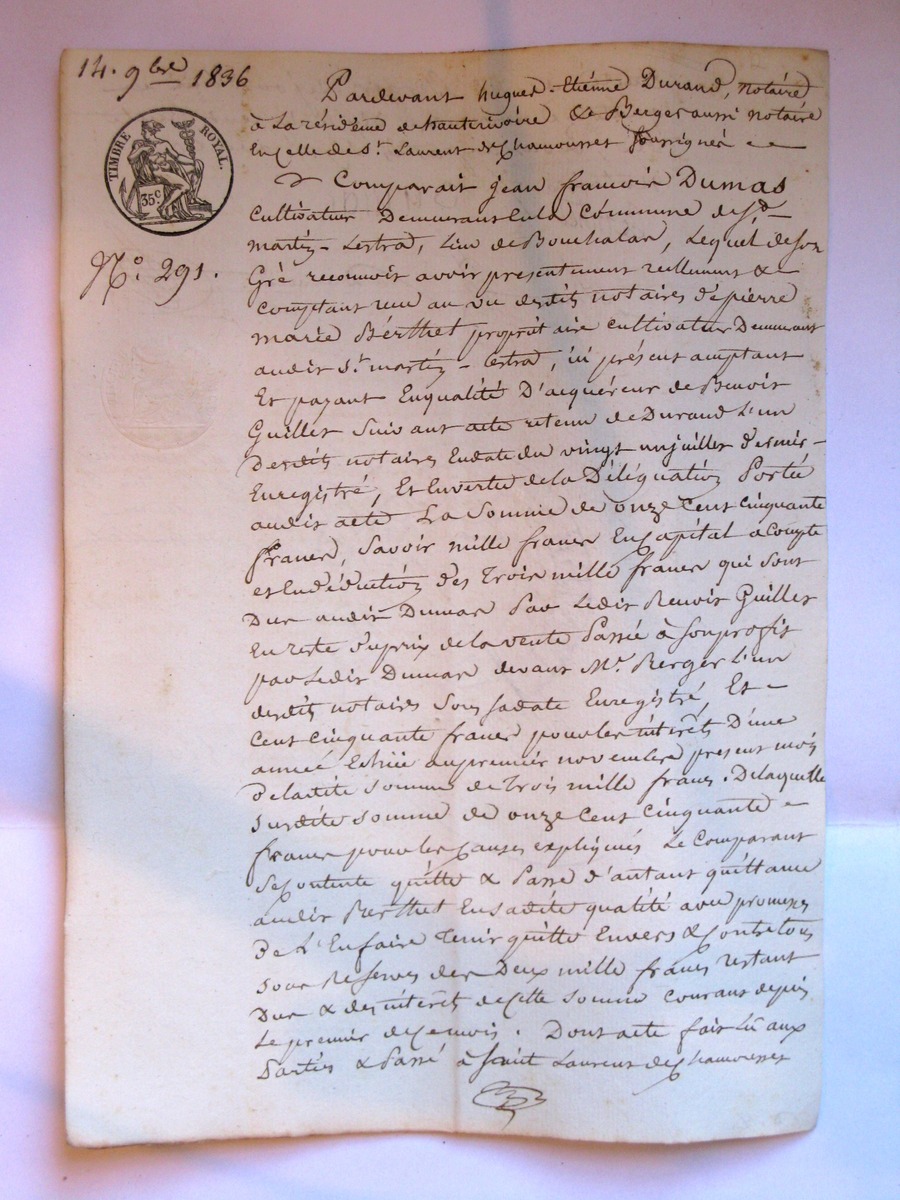 14. 9bre 1836
TIMBRE ROYAL.
35c
N.o 291.
Pardevant hugues-Etiénne Durand, notaire
à La résidence de hauterivoire & Berger aussi notaire
En celle de St. Laurent de Chamousset soussignés
Comparait jean francois Dumas
Cultivateur Demeurant en la Commune de St.
martin-Lestrad, Lieu de Bouchalas, Lequel de son
Gré reconnoit avoir présentement réellement &
Comptant reçu au vu desdits notaires de pierre
marie Bérthet propriétaire cultivateur Demeurant
audit St. martin-Lestrad, ici présent acceptant
Et payant En qualité D'acquéreur de Benoit
Guillet Suivant acte retenu de Durand L'un
Desdits notaires En date du vingt un juillet dernier
Enregistré, Et En vertu de la Déléguation Portée
audit acte La Somme de onze Cent Cinquante
francs, Savoir mille francs En Capital acompte
et En déduction des Trois mille francs qui sont
Dus audit Dumas Par Ledit Benoit Guillet
En reste du prix de la vente Passée à Son profit
par Ledit Dumas devant Mr. Berger L'un
desdits notaires Sous sa date Enregistré, Et
Cent Cinquante francs pour les intérêts D'une
année Echüe au premier novembre présent mois
de ladite Somme de Trois mille francs. De laquelle
Susdite Somme de onze Cent Cinquante
francs pour les Causes expliqués Le Comparant
Se Contente quitte & Passe d'autant quittance
audit Berthet En sadite qualité avec promesse
De L'En faire Tenir quitte Envers & Contre tous
sous Réserves des Deux mille francs restant
Dus & des intérêts de Cette Somme Courans depuis
Le premier de Ce mois. Dont acte fait Lû aux
Parties & Passé à Saint Laurent de Chamousset